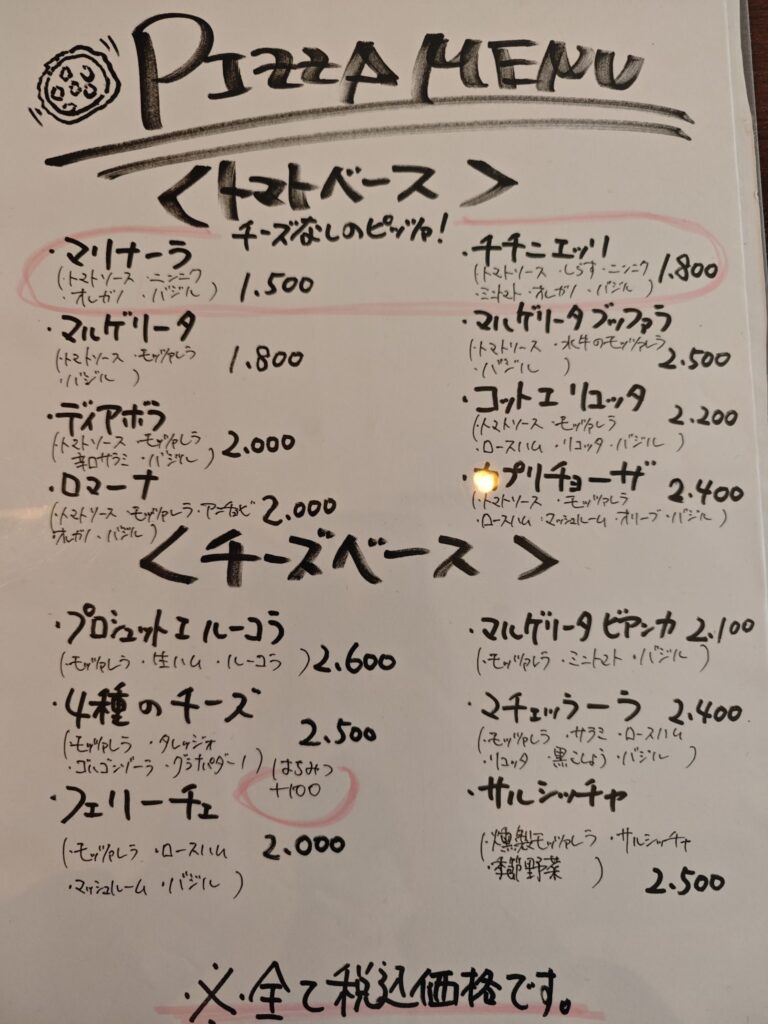 PIZZA MENU
<トマトベース>
チーズなしのピッツァ!
・マリナーラ
(・トマトソース ・ニンニク
・オレガノ ・バジル) 1.500
・チチニエッリ
(・トマトソース ・しらす ・ニンニク
・ミニトマト ・オレガノ ・バジル) 1.800
・マルゲリータ
(・トマトソース ・モッツァレラ
・バジル) 1.800
・マルゲリータ ブッファラ
(・トマトソース ・水牛のモッツァレラ
・バジル) 2.500
・ディアボラ
(・トマトソース ・モッツァレラ
辛口サラミ ・バジル) 2.000
・コットエ リコッタ
(・トマトソース ・モッツァレラ
・ロースハム ・リコッタ ・バジル) 2.200
・ロマーナ
(・トマトソース ・モッツァレラ ・アンチョビ
・オレガノ ・バジル) 2.000
・カプリチョーザ
(・トマトソース ・モッツァレラ
・ロースハム ・マッシュルーム ・オリーブ ・バジル) 2.400
<チーズベース>
・プロシュットエ ルーコラ
(・モッツァレラ ・生ハム ・ルーコラ) 2.600
・マルゲリータ ビアンカ 2.100
(・モッツァレラ ・ミニトマト ・バジル)
・4種のチーズ
(・モッツァレラ ・タレッジオ
・ゴルゴンゾーラ ・グラナパダーノ) 2.500
(はちみつ
+100
・マチェッラーラ 2.400
(・モッツァレラ ・サラミ ・ロースハム
・リコッタ 黒こしょう ・バジル)
・フェリーチェ
(・モッツァレラ ・ロースハム
・マッシュルーム ・バジル) 2.000
・サルシッチャ
(・燻製モッツァレラ ・サルシッチャ
・季節野菜) 2.500
・※・全て税込価格です。